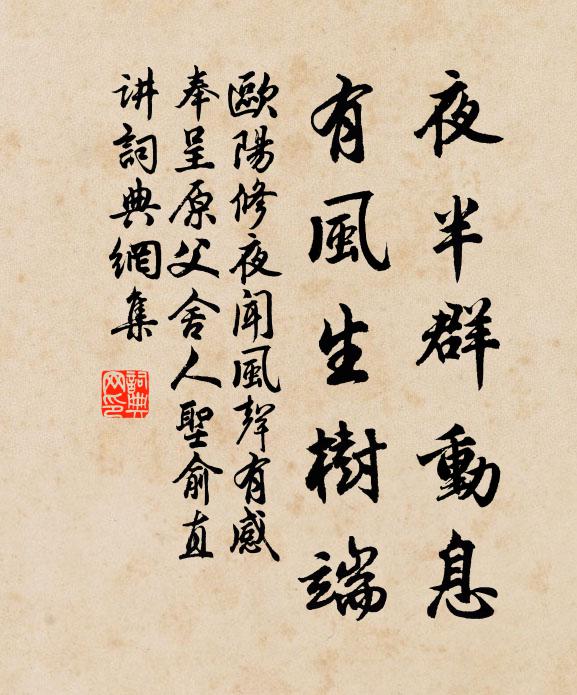 夜半群動息
有風生樹端
歐陽修夜聞風聲有感
奉呈原父舍人聖俞直
讲詞典網集
詞典
网印